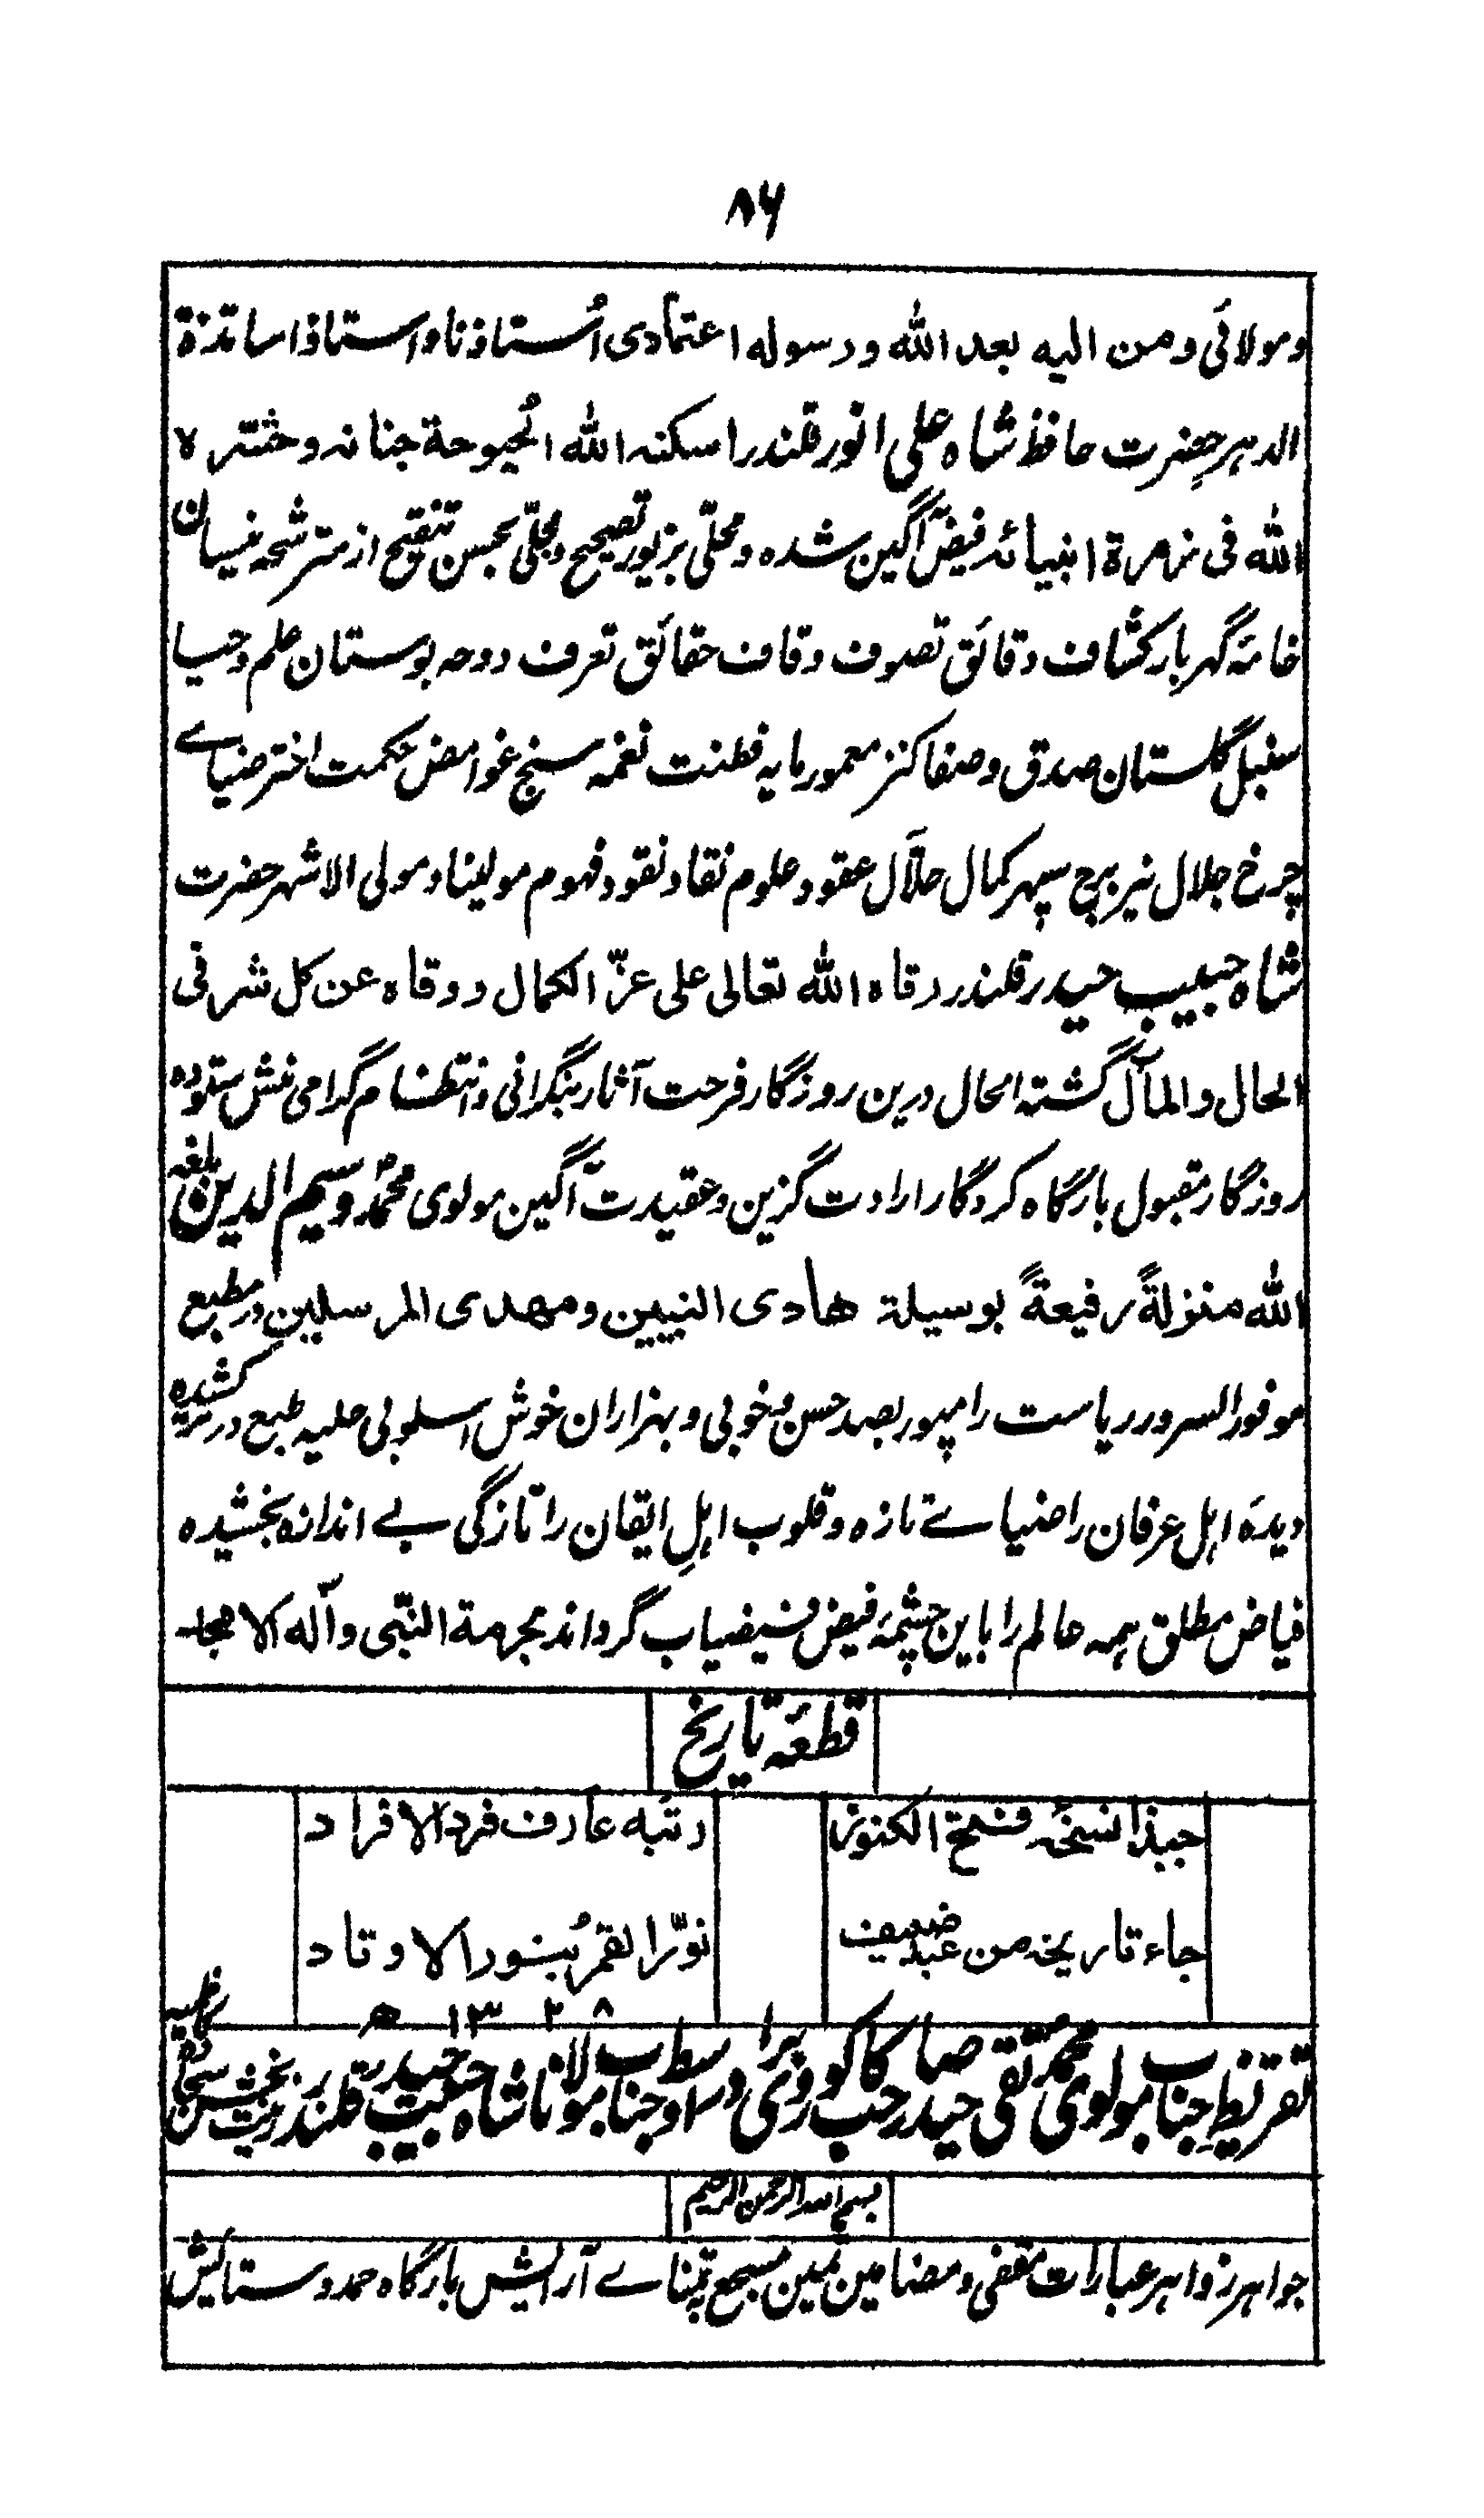 ۸۶
ومولائی ومن الیہ بعد اللہ ورسولہ اعتمادی اُستاذنا واستاذ اساتذۃ
الدہر حضرت حافظ شاہ علی انور قلندر اسکنہ اللہ بُحبوحۃ جنانہ وحشرہ
اللہ فی زمرۃ انبیائہ فیض آگین شدہ ومحلّی بزیور تصحیح ومجلّی بحسن تنقیح از مترشحہ نیسان
خامۂ گہربار کشاف دقائق تصوف وقاف حقائق تعرف دوحہ بوستان علم وحیا
سنبل گلستان صدق وصفا کنز معمور مایہ فطنت نغمہ سنج غوامض حکمت اختر ضیاے
چرخ جلال نیر برج سپہر کمال حلّال عقود علوم نقاد نقود فہوم مولینا ومولی الاشہر حضرت
شاہ حبیب حیدر قلندر رقاہ اللہ تعالی علی عزّ الکمال ووقاہ عن کل شر فی
الحال والمآل گشتہ الحال درین روزگار فرحت آثار بنگرانی وانتظام گرامی منش ستودہ
روزگار مقبول بارگاہ کردگار ارادت گزین وعقیدت آگین مولوی محمد وسیم الدین بلغہ
اللہ منزلۃً رفیعۃً بوسیلۃ ھادی النبیین ومھدی المرسلین در مطبع
موفور السرور ریاست رامپور بصد حسن وخوبی وبہزاران خوش اسلوبی حلیہ طبع دربر کشیدہ
دیدۂ اہل عرفان را ضیاے تازہ وقلوب اہلِ ایقان را تازگی بے اندازہ بخشیدہ
فیاض مطلق ہمہ عالم را باین چشمۂ فیض فیضیاب گرداناد بحرمۃ النبّی وآلہ الامجاد
قطعۂ تاریخ
حبذا نسخۂ فتح الکنوز
رتبہ عارف فرد الافراد
جاء تاریخہ من عبد ضعیف
نوّر القمرُ بنور الاوتاد
۱۳۲۸ھ
تقریظ جناب مولوی محمد تقی حیدر صاحب کاکوروی برادر اوسط جناب مولانا شاہ حبیب حیدر قلندر
بسم اللہ الرحمن الرحیم
جواہر زواہر عبارات مقفی ومضامین ثمین مسجع تمناے آرایش بارگاہ حمد وستایش